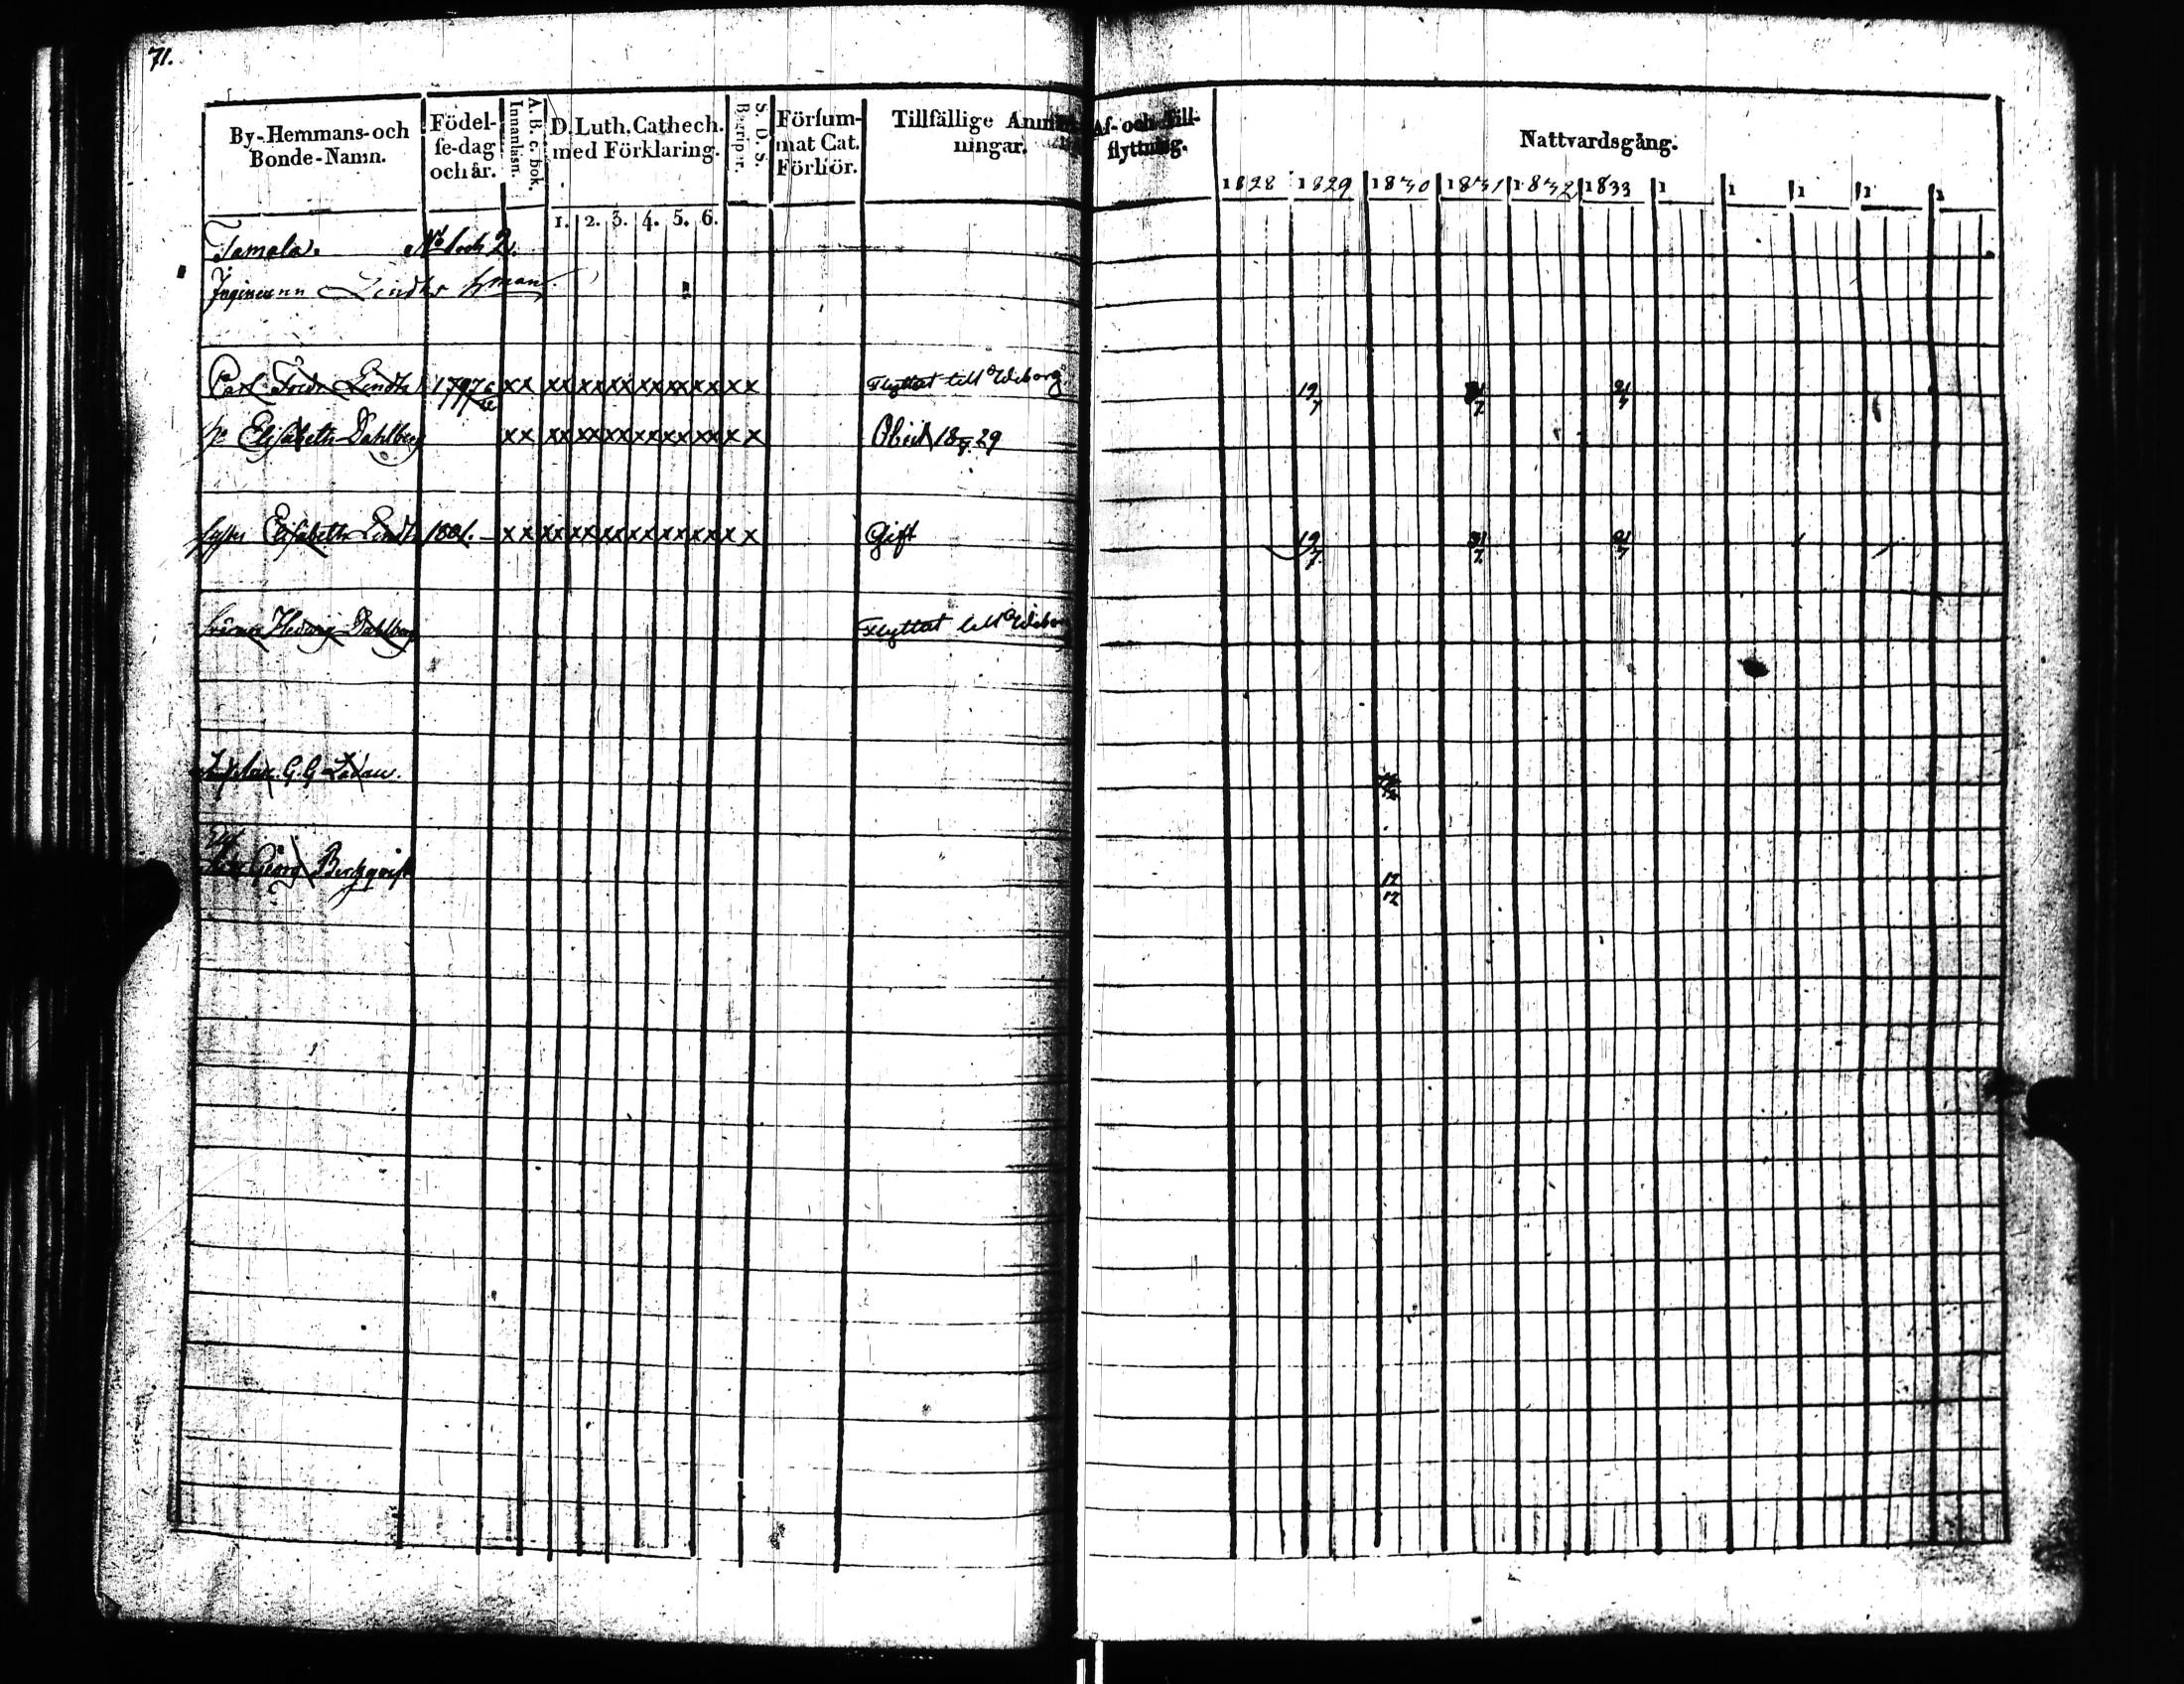 71.
By-Hemmans-och Bonde-Namn.
Födel-se-dag och år.
A. B. c. bok. Innanläsn.
D. Luth. Cathech. med Förklaring.
1. 2. 3. 4. 5. 6.
S. D. S. Begriper.
Försum-mat Cat. Förhör.
Tillfällige Anm ningar.
Af- och Till-flyttning.
Nattvardsgång.
1828 1829 1830 1831 1832 1833 1 1 1 1 1
Tamala. No 1 och 2.
Lindhs
Carl Fredr Lindh 1797 xx xx xx xx xx xx xx xx Flyttat till Wiborg. 19/7 31/7 21/7
Elisabeth Dahlberg xx xx xx xx xx xx xx xx Obiit 18 29
Elisabeth Lindh 1801. xx xx xx xx xx xx xx xx Gift 19/7 31/7 21/7
Hedvig Dahlberg Flyttat till Wiborg
G. G.
Georg Berkqvist 12/12